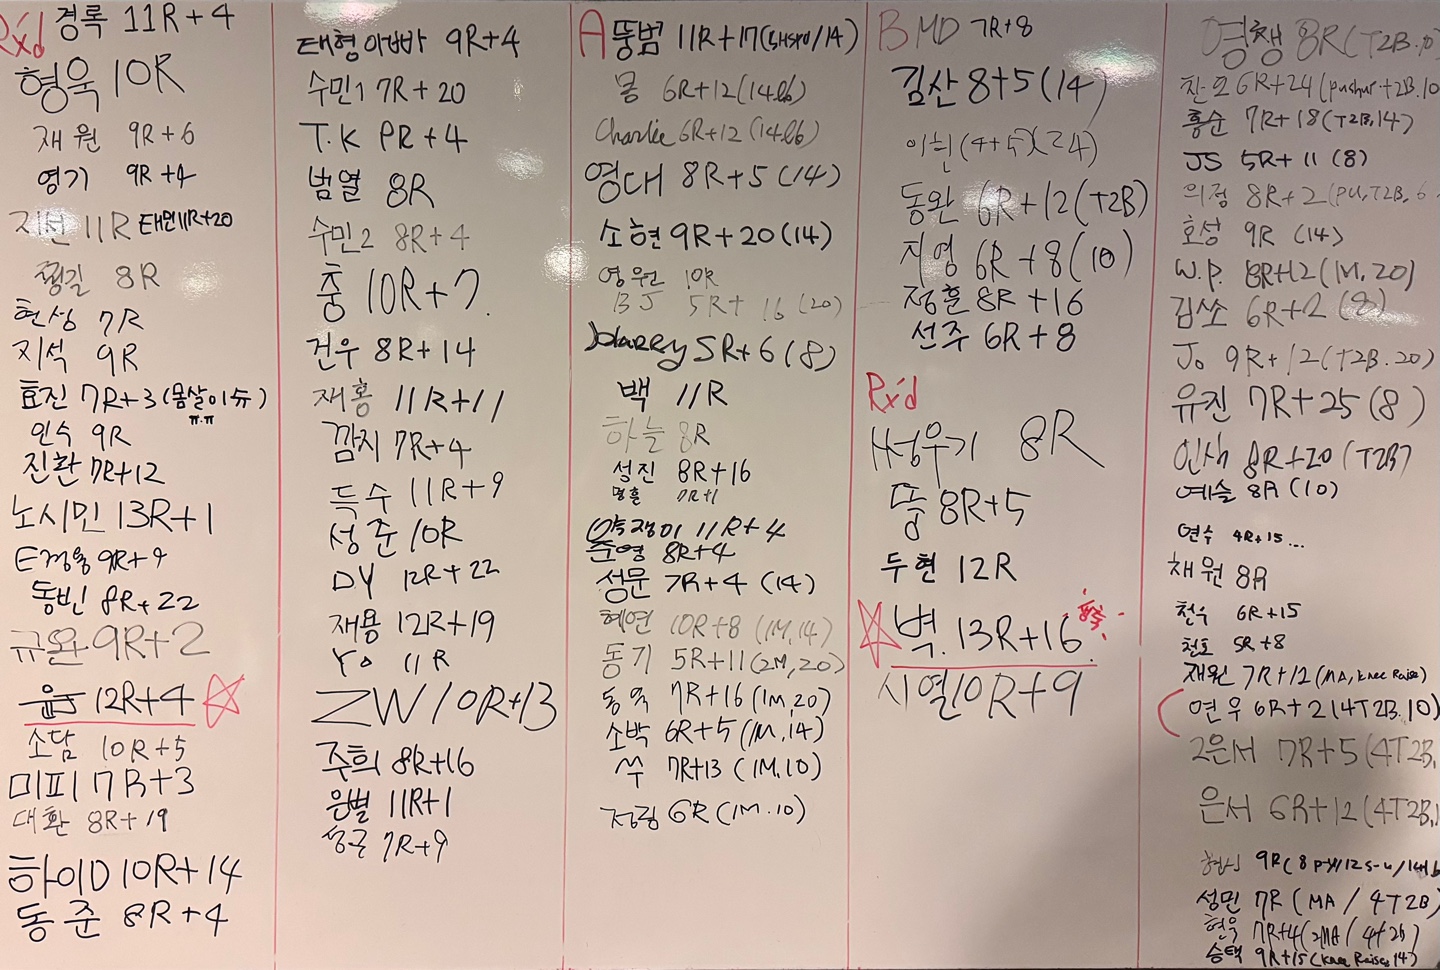 Rx'd 경록 11R+4
형욱 10R
재원 9R+6
영기 9R+4
지선 11R 태민 11R+20
평길 8R
현성 7R
지석 9R
효진 7R+3 (몸살이슈)
ㅠ.ㅠ
인수 9R
진환 7R+12
노시민 13R+1
9R+9
동빈 8R+22
규완 9R+2
윤수 12R+4
소담 10R+5
미피 7R+3
대환 8R+19
하이D 10R+14
동준 8R+4
태형아빠 9R+4
수민1 7R+20
T.K 9R+4
범열 8R
수민2 8R+4
충 10R+7
건우 8R+14
재홍 11R+11
깜지 7R+4
득수 11R+9
성준 10R
DY 12R+22
재용 12R+19
Yo 11R
ZW 10R+13
주희 8R+16
은별 11R+1
성근 7R+9
A 뚱범 11R+17 (/14)
몽 6R+12 (14lb)
Charlie 6R+12 (14lb)
영대 8R+5 (14)
소현 9R+20 (14)
영원 10R
BJ 5R+16 (20)
Harry 5R+6 (8)
백 11R
하늘 8R
성진 8R+16
명훈 7R+1
11R+4
준영 8R+4
성문 7R+4 (14)
혜연 10R+8 (1M, 14)
동기 5R+11 (2M, 20)
동욱 7R+16 (1M, 20)
소박 6R+5 (1M, 14)
쑤 7R+13 (1M, 10)
정림 6R (1M. 10)
B MD 7R+8
김산 8+5 (14)
이현
동완 6R+12 (T2B)
지영 6R+8 (10)
정훈 8R+16
선주 6R+8
Rx'd
성우기 8R
뚱 8R+5
두현 12R
벽. 13R+16
시열 10R+9
영챙 8R (T2B.10)
찬오 6R+24 (pushup+T2B.10
홍순 7R+18 (T2B, 14)
JS 5R+11 (8)
의정 8R+2 (PU, T2B, 6
호성 9R (14)
W.P. 8R+2 (1M, 20)
김쏘 6R+2 (8)
Jo 9R+12 (T2B. 20)
유진 7R+25 (8)
인삼 8R+20 (T2B)
예슬 8R (10)
연수 4R+15...
채원 8R
천수 6R+15
천호 5R+8
재원 7R+12 (MA, knee Raise)
연우 6R+2 (4T2B. 10)
2은서 7R+5 (4T2B,
은서 6R+12 (4T2B,
현시 9R (8 /12 s-u/14lb
성민 7R (MA / 4T2B)
현욱 7R+4 (2MA / 4t2b)
승택 9R+15 (knee Raises 14)